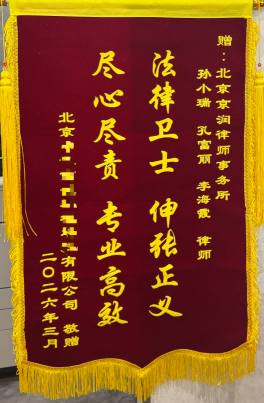 赠：北京京润律师事务所
孙小瑞 孔富丽 李海霞 律师
法律卫士 伸张正义
尽心尽责 专业高效
北京 有限公司 敬赠
二〇二六年三月